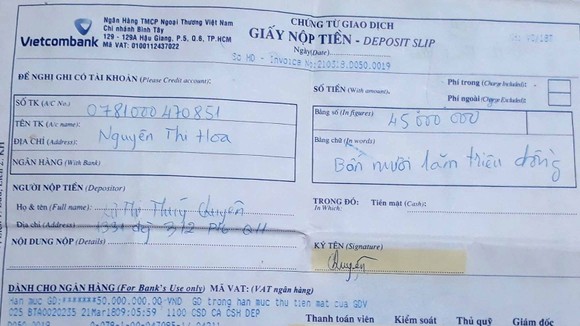 Vietcombank
Ngân Hàng TMCP Ngoại Thương Việt Nam
Chi nhánh Bình Tây
129 - 129A Hậu Giang, P.5, Q.6, TP.HCM
Mã VAT: 0100112437022
CHỨNG TỪ GIAO DỊCH
GIẤY NỘP TIỀN - DEPOSIT SLIP
Ngày(Date)
So HD - Invoice No:210318.0050.0019
ĐỀ NGHỊ GHI CÓ TÀI KHOẢN (Please Credit account):
SỐ TIỀN (With amount):
Phí trong (Charge Included):
Phí ngoài (Charge Excluded):
SỐ TK (A/C No.) 0781000470851
TÊN TK (A/c name): Nguyễn Thi Hoa
ĐỊA CHỈ (Address):
NGÂN HÀNG (With Bank)
Bằng số (In figures) 45000000
Bằng chữ (In words) Bốn mươi lăm triệu đồng
NGƯỜI NỘP TIỀN (Depositor)
Họ & tên (Full name): Thị Thúy Quyên
Địa chỉ (Address)
NỘI DUNG NỘP (Details)
TRONG ĐÓ:
In Which:
Tiền mặt (Cash):
KÝ TÊN (Signature)
DÀNH CHO NGÂN HÀNG (For Bank's Use only) MÃ VAT: (VAT ngân hàng)
Han muc GD:*******50.000.000.00-VND GD trong han muc thu tien mat cua GDV
025 BTA0020235 21Mar1809:05:59 1100 CSD CA CSH DEP
Thanh toán viên
Kiểm soát
Giám đốc